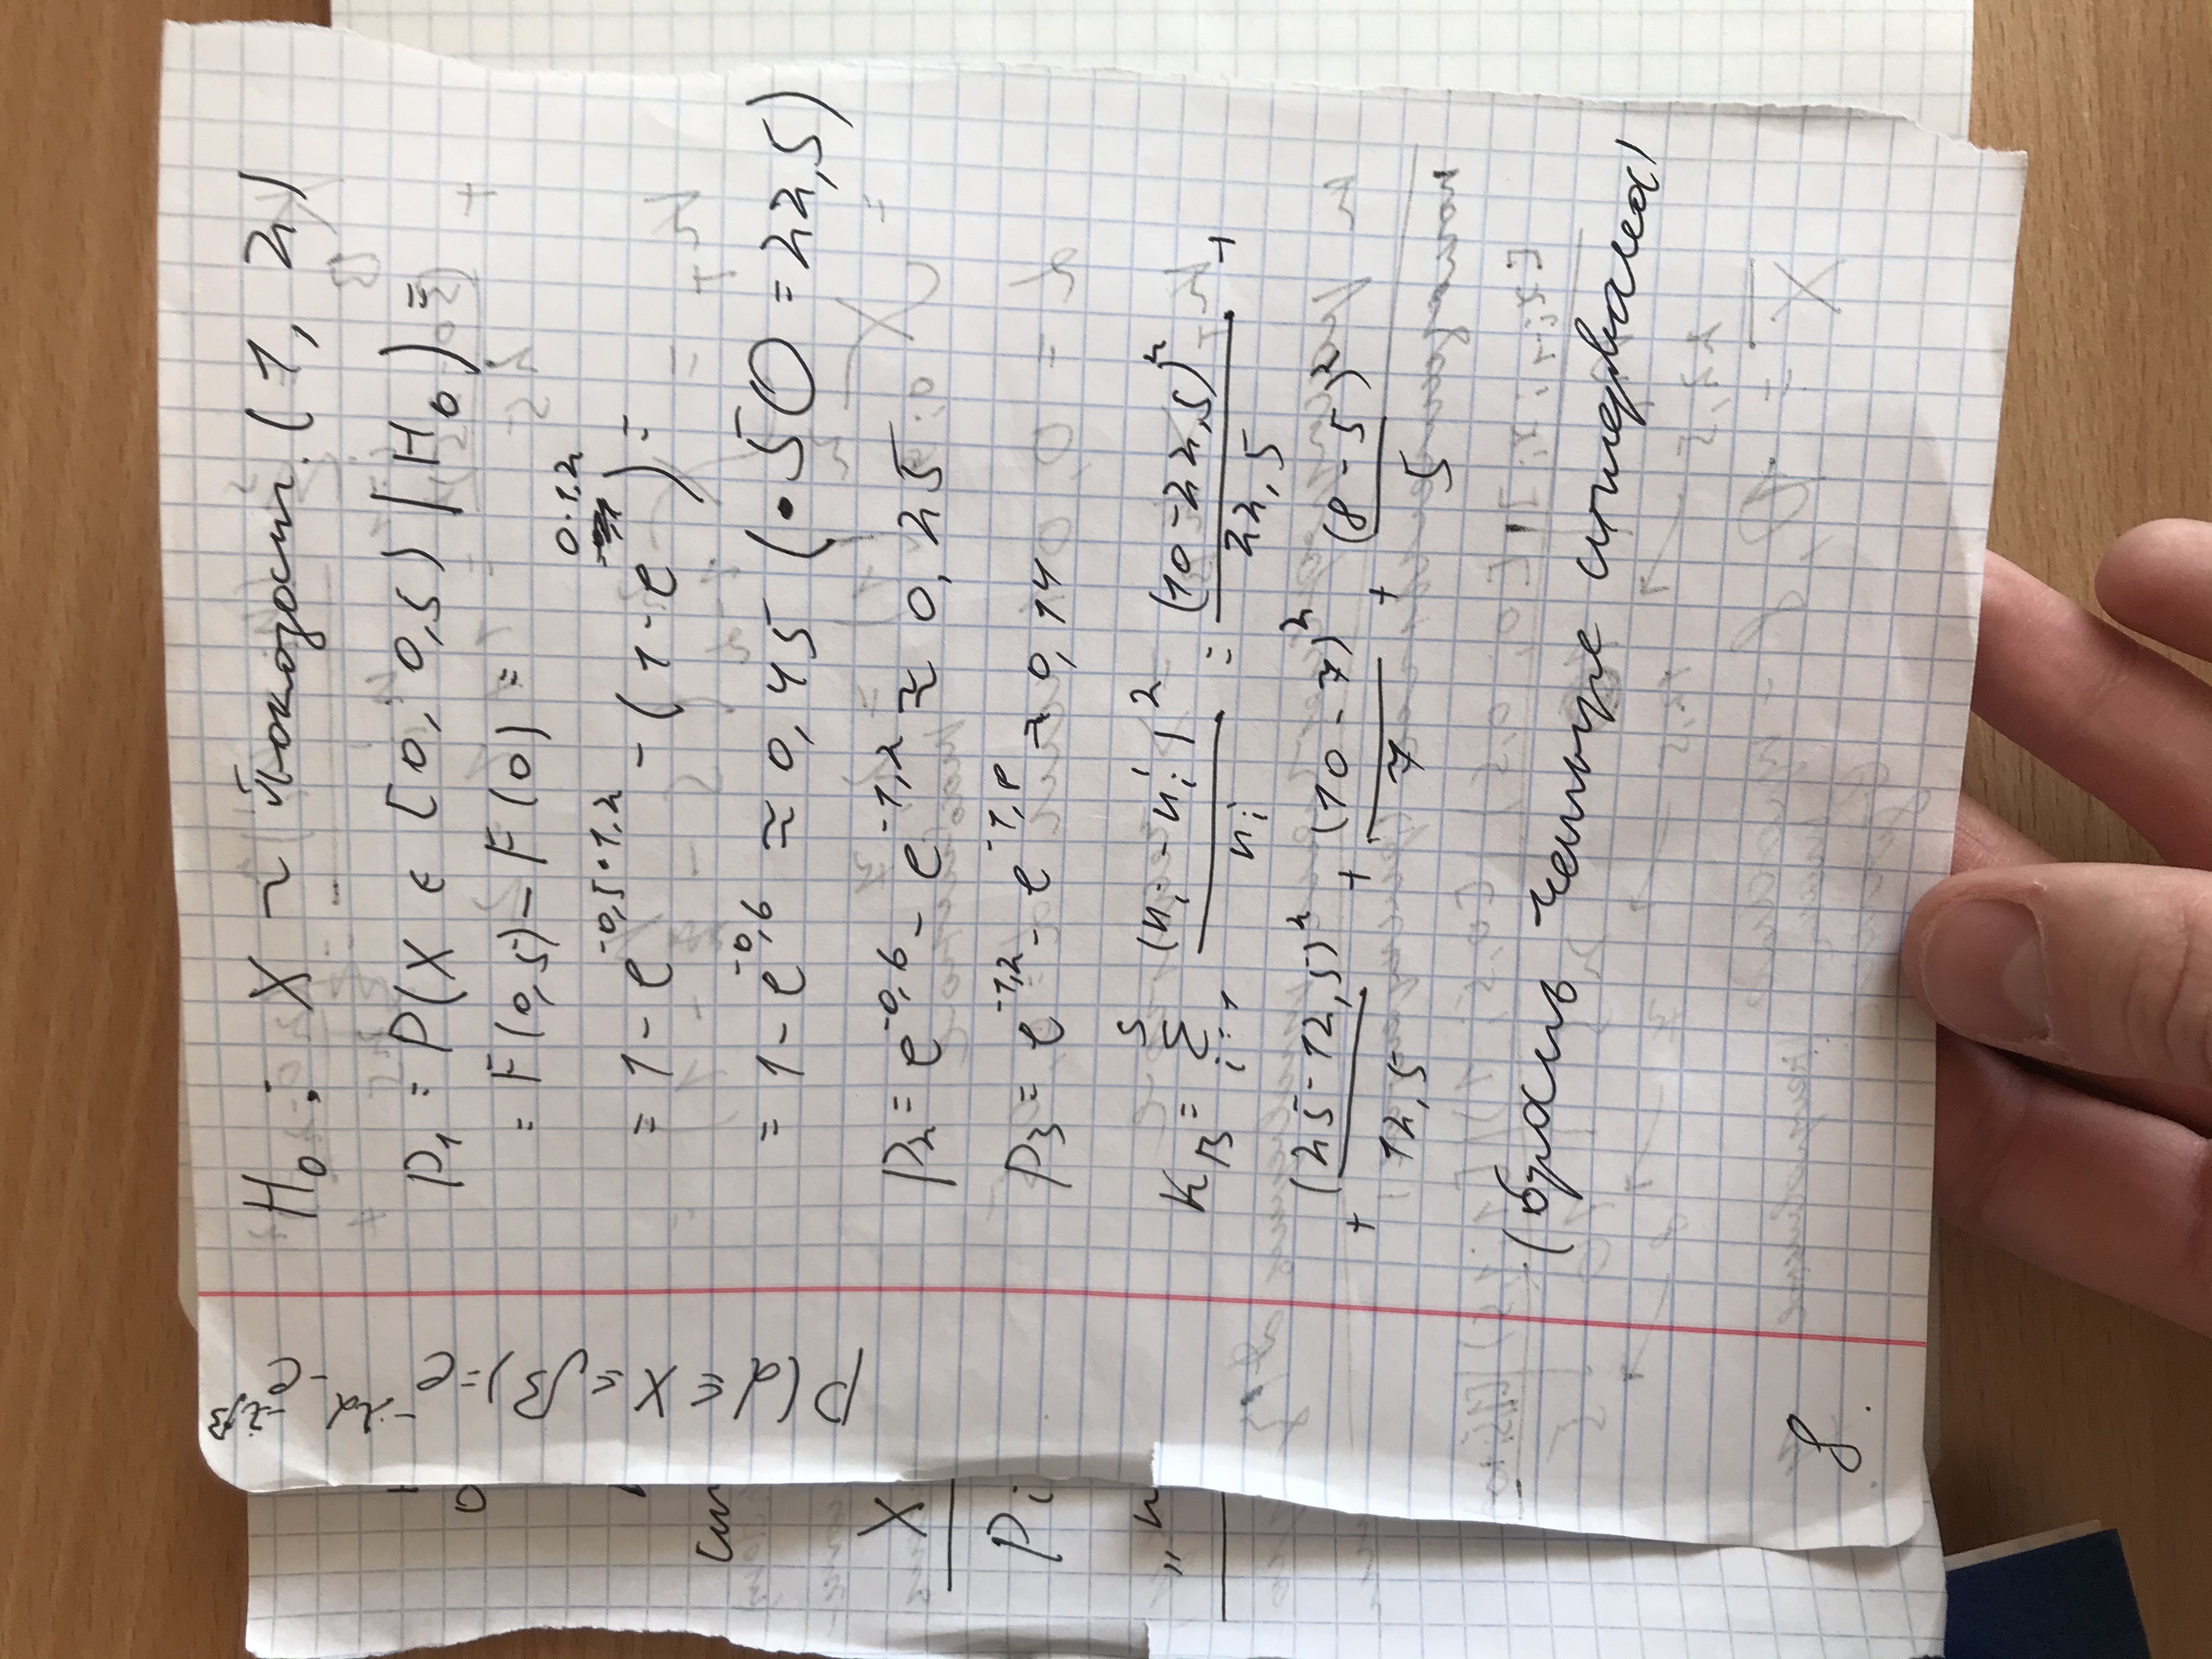 P(α ≤ X ≤ β) = e^{-λα} - e^{-λβ}
H₀ : X ~ Показат. (1, 2)
p₁ = P(X ∈ [0, 0,5) | H₀) =
= F(0,5) - F(0) =
= 1 - e^{-0,5·1,2} - (1 - e^{0·1,2}) =
= 1 - e^{-0,6} ≈ 0,45 (·50 = 22,5)
p₂ = e^{-0,6} - e^{-1,2} ≈ 0,25
p₃ = e^{-1,2} - e^{-1,8} ≈ 0,14
K_B = Σ_{i=1}^{5} (n_i - n_i')² / n_i = (10 - 22,5)² / 22,5 +
+ (25 - 12,5)² / 12,5 + (10 - 7)² / 7 + (8 - 5)² / 5
(брать четыре интервала)
8.
X
P_i